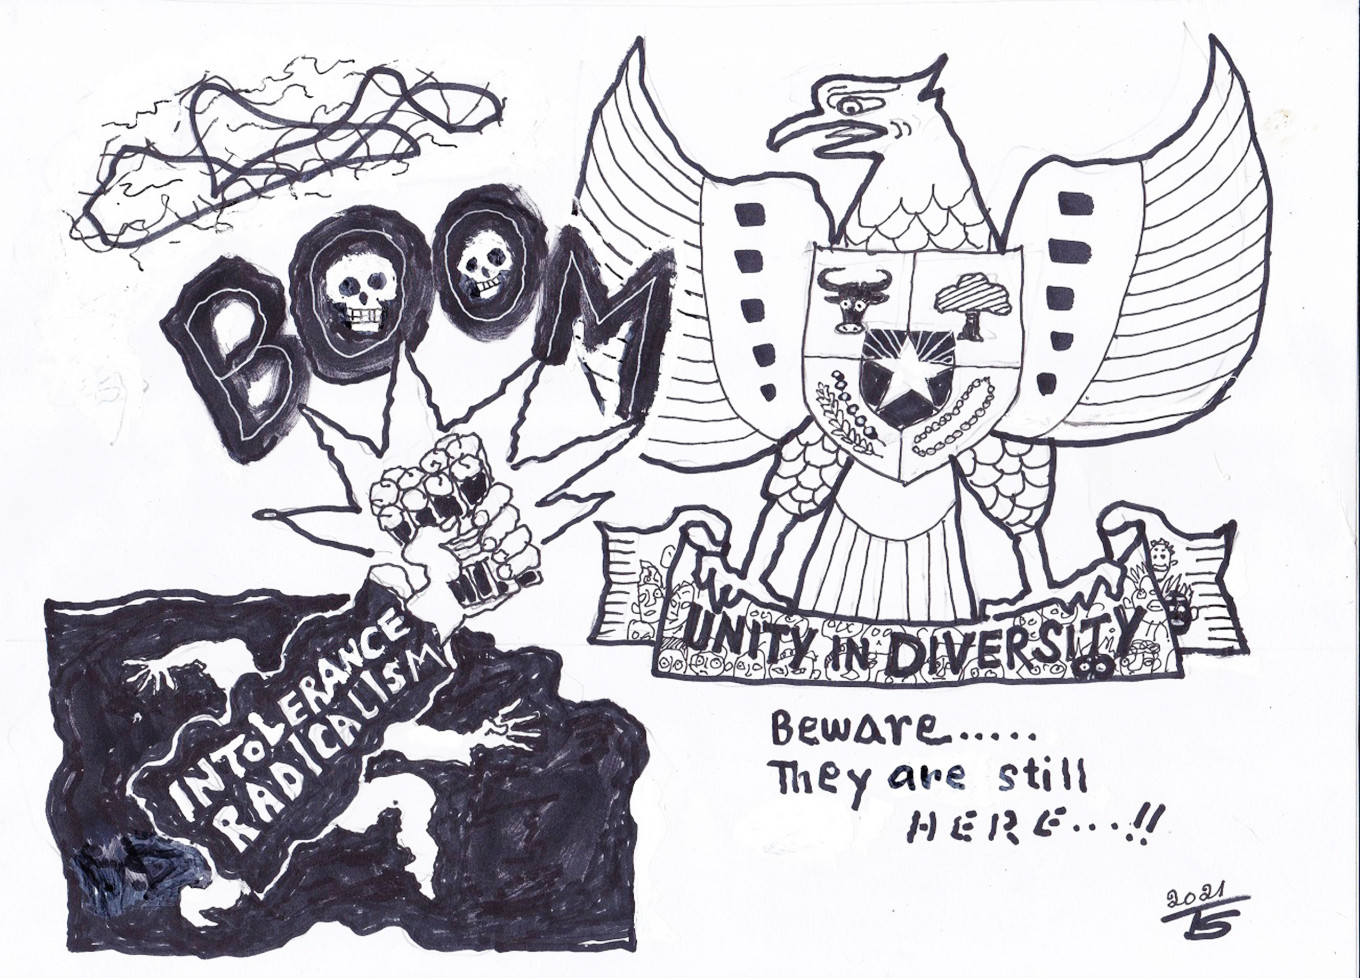 BOOM
INTOLERANCE
RADICALISM
UNITY IN DIVERSITY
Beware.....
They are still
HERE...!!
2021
TS